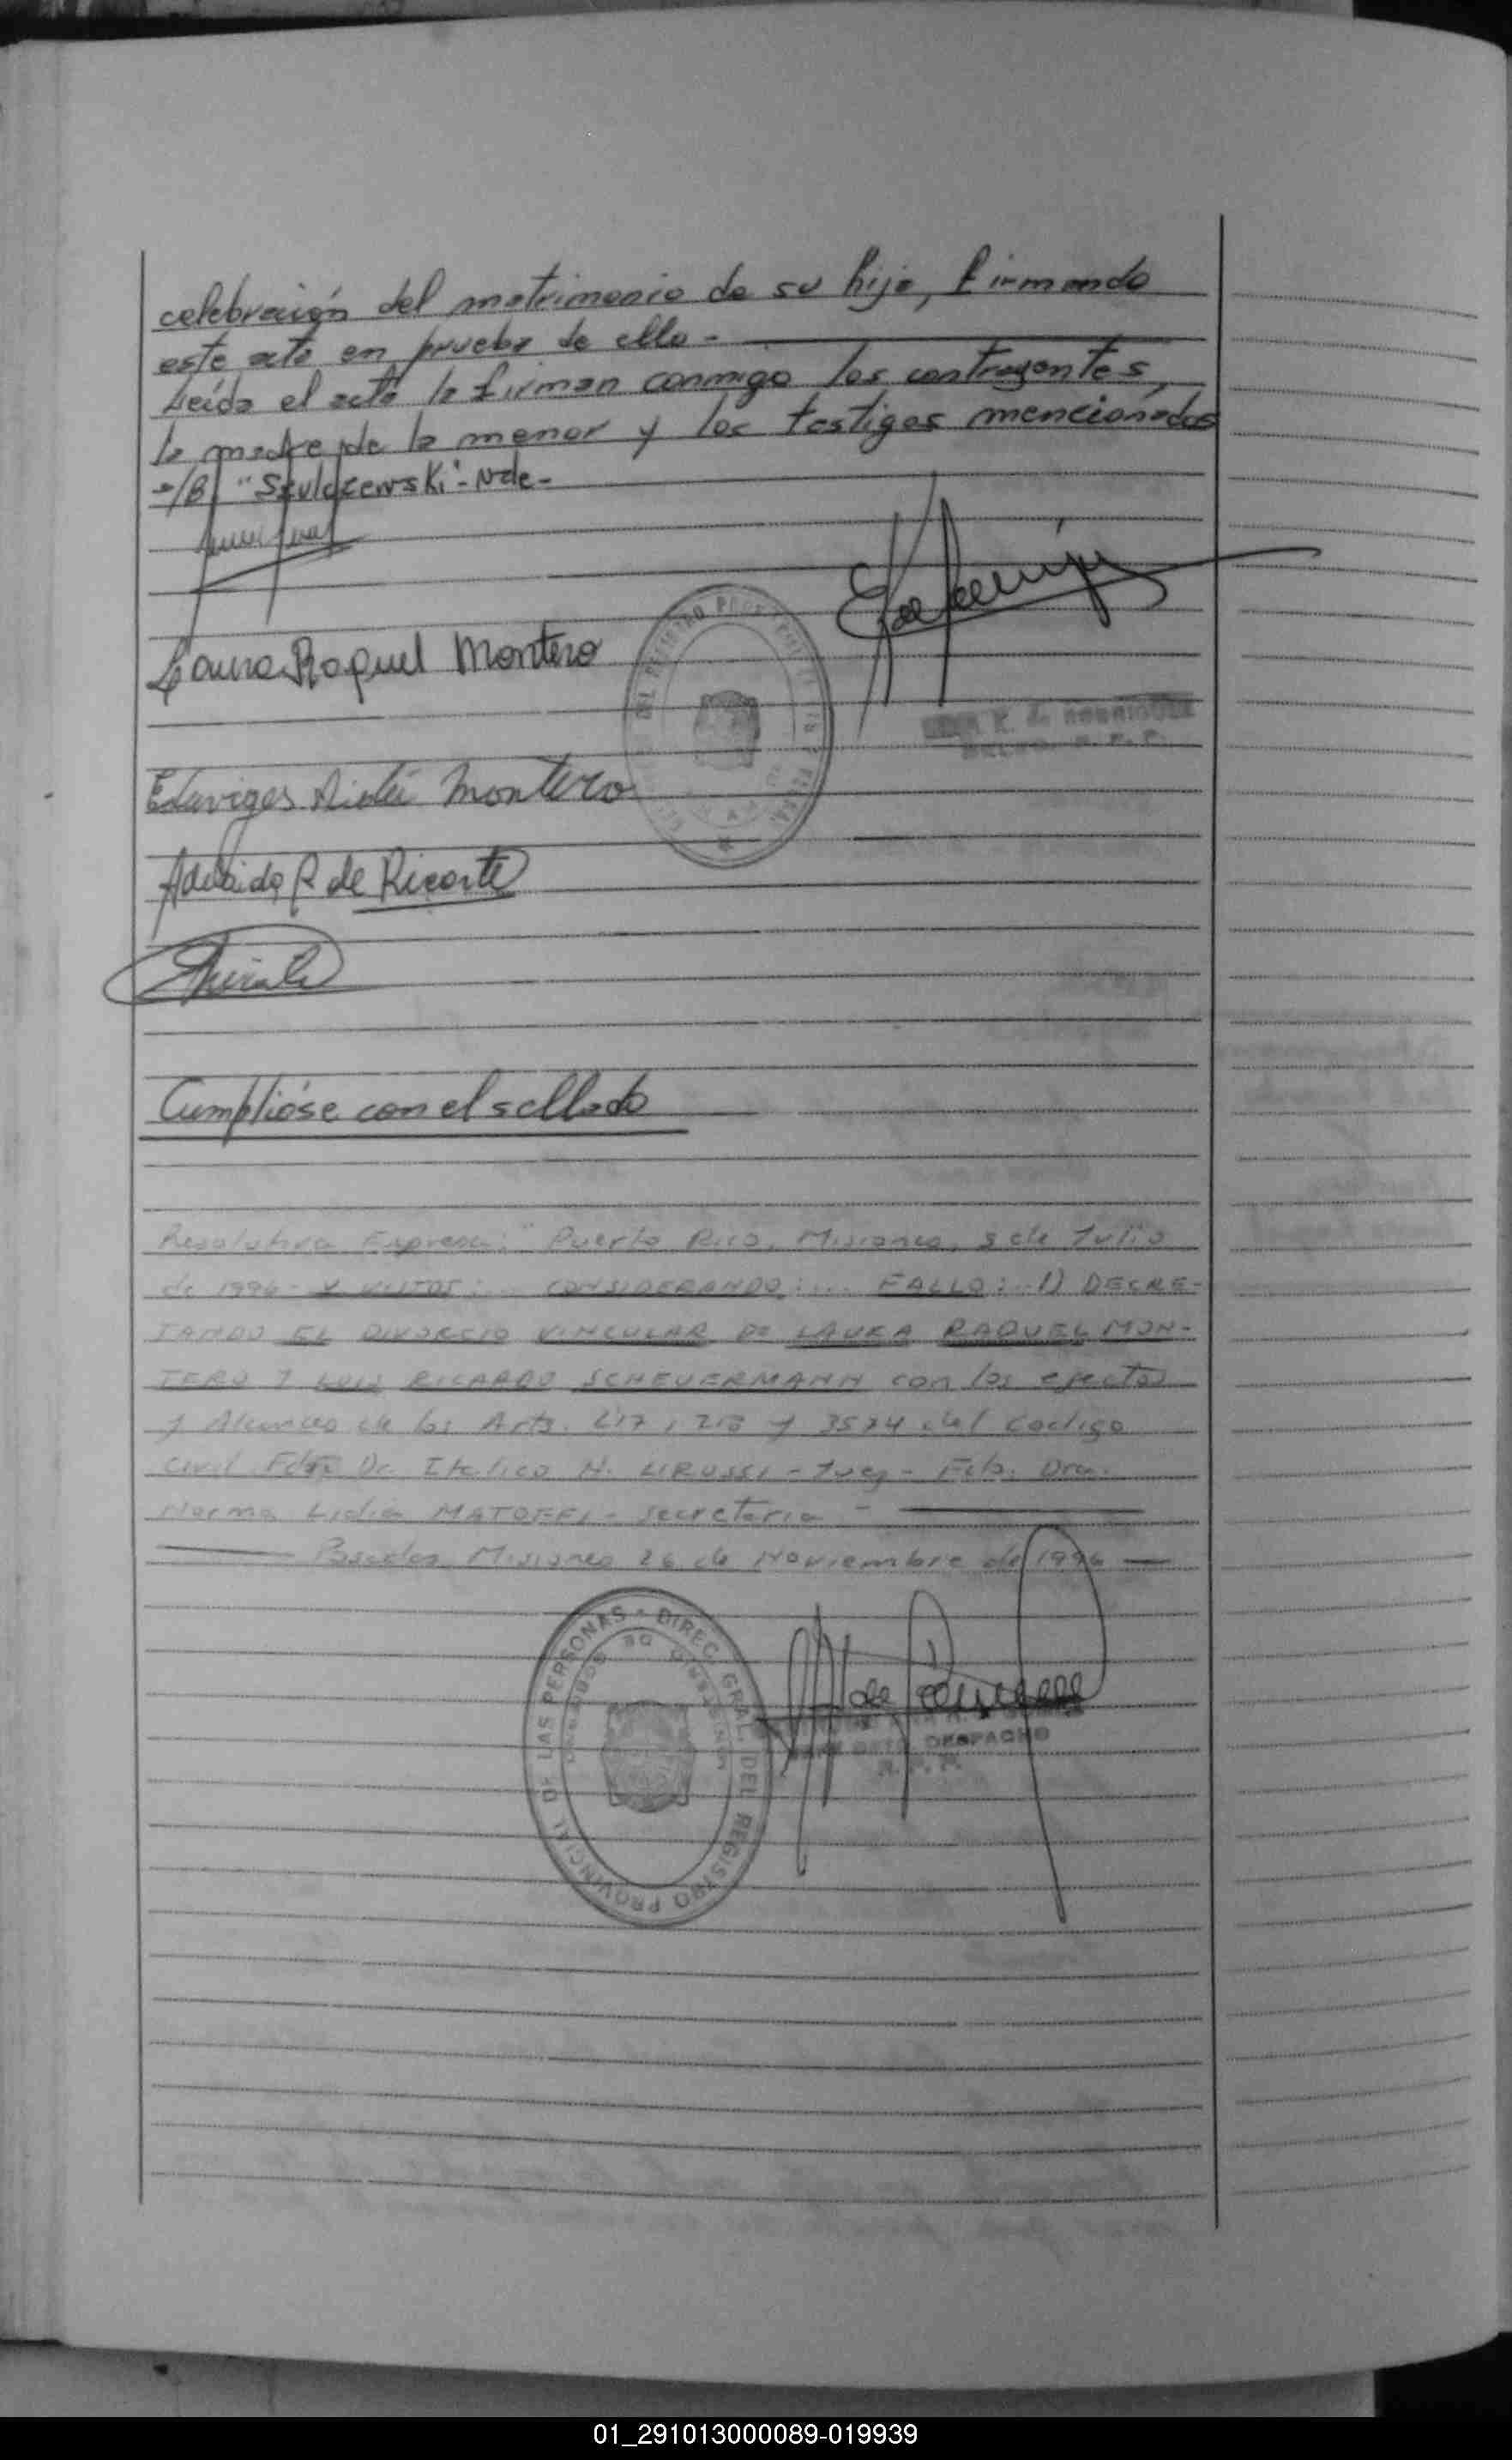 celebración del matrimonio de su hija, firmando
este acto en prueba de ello -
Leída el acta la firman conmigo los contrayentes,
la madre de la menor y los testigos mencionados
s/B/ "Szulczewski" - Vale -
Laura Raquel Montero
Eduviges Montero
Adelaida R de Ricarte
Cumplióse con el sellado
Resolutiva Expresa: "Puerto Rico, Misiones, 3 de Julio
de 1996 - Y VISTOS: ... CONSIDERANDO: ... FALLO: .. 1) DECRE-
TANDO EL DIVORCIO VINCULAR DE LAURA RAQUEL MON-
TERO Y LUIS RICARDO SCHEUERMANN con los efectos
y Alcances de los Arts. 217, 218 y 3574 del Codigo
Civil. Fdo. Dr. Italico N. LIRUSSI - Juez - Fdo. Dra.
Norma Lidia MATOFFI - Secretaria -
Posadas Misiones 26 de Noviembre de 1996
DIREC. GRAL. DEL REGISTRO PROVINCIAL DE LAS PERSONAS
MINISTERIO DE GOBIERNO
DESPACHO
R. P. P.
01_291013000089-019939